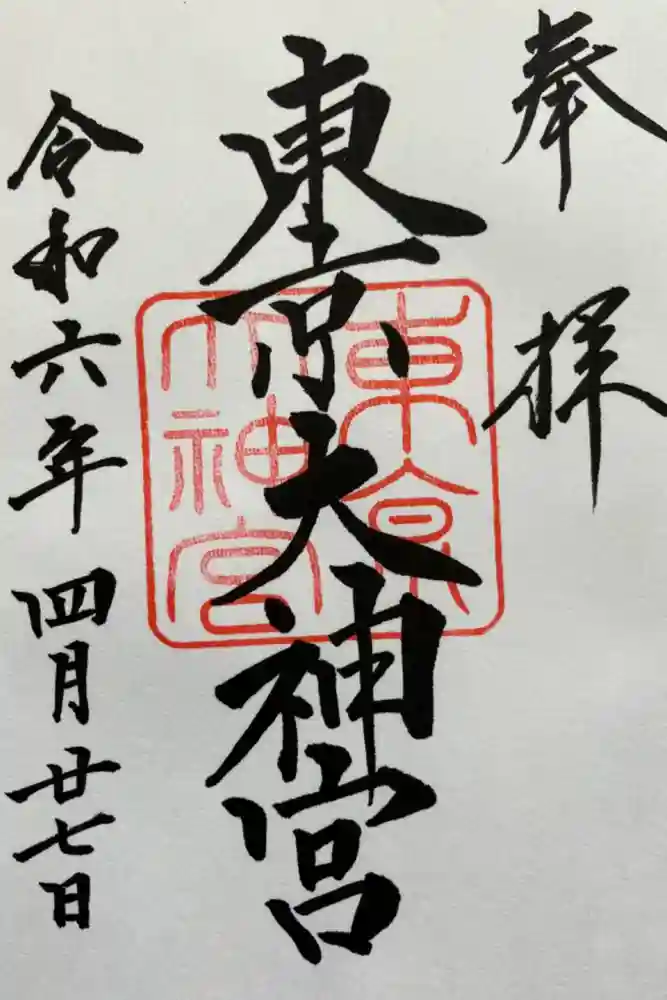 奉拝
東京大神宮
東京大神宮
令和六年四月廿七日